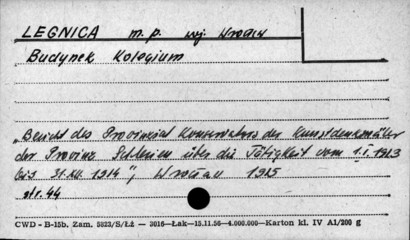 LEGNICA m. p. woj. Wrocław
Budynek Kolegium
„Bericht des Provinzial Konservators der Kunstdenkmäler
der Provinz Schlesien über die Tätigkeit vom 1.I.1913
bis 31.XII. 1914", Wrocław 1915
str. 44
CWD - B-15b, Zam. 5923/S/ŁŻ — 3016—Łak—15.11.56—4.000.000—Karton kl. IV A1/200 g